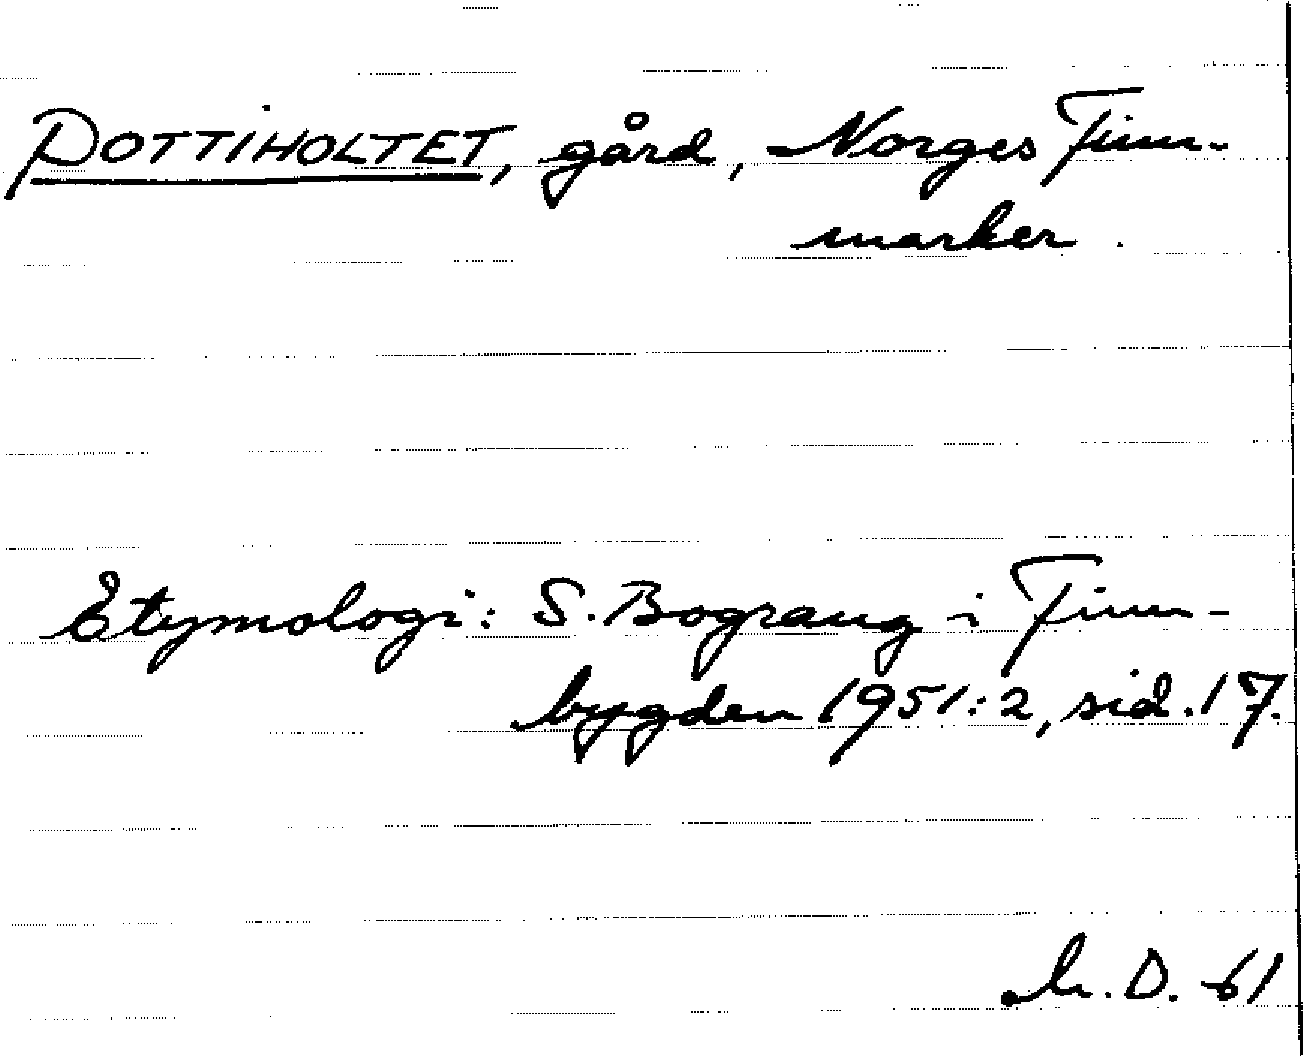 POTTIHOLTET, gård, Norges Finn-
marker.
Etymologi: S. Bograng i Finn-
bygden 1951:2, sid. 17.
D. 61